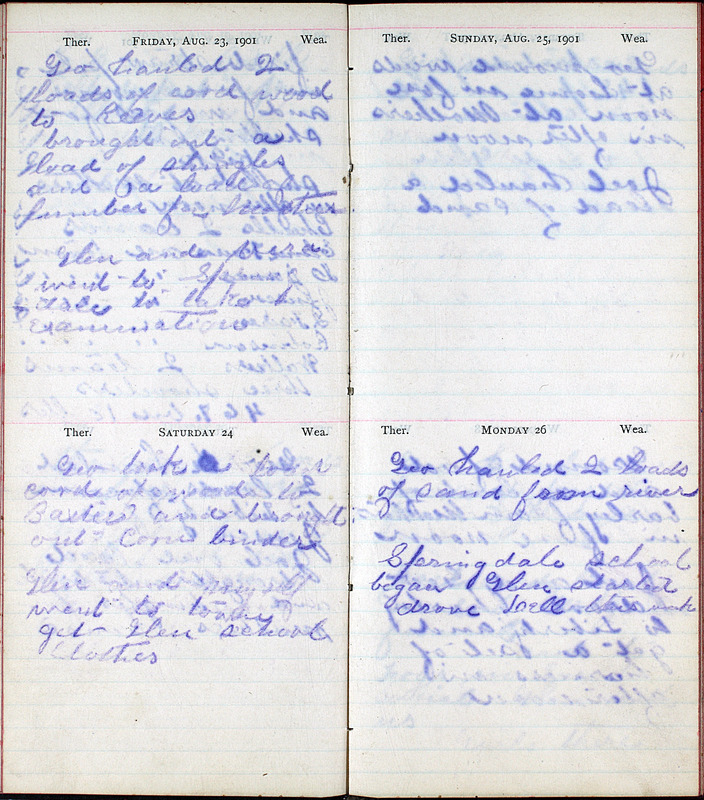 Ther. FRIDAY, AUG. 23, 1901 Wea.
Geo hauled 2
loads of cord wood
to Reeves
brought out a
load of shingles
and a load of
lumber for
Glen and Vera
went to Spring
dale to take
examination
Ther. SATURDAY 24 Wea.
Geo took a four
cord of wood to
Baxter and brought
out Corn binder
Glen and myself
went to town
get Glen school
Clothes
Ther. SUNDAY, AUG. 25, 1901 Wea.
Ther. MONDAY 26 Wea.
Geo hauled 2 loads
of sand from river
Springdale school
began Glen started
drove